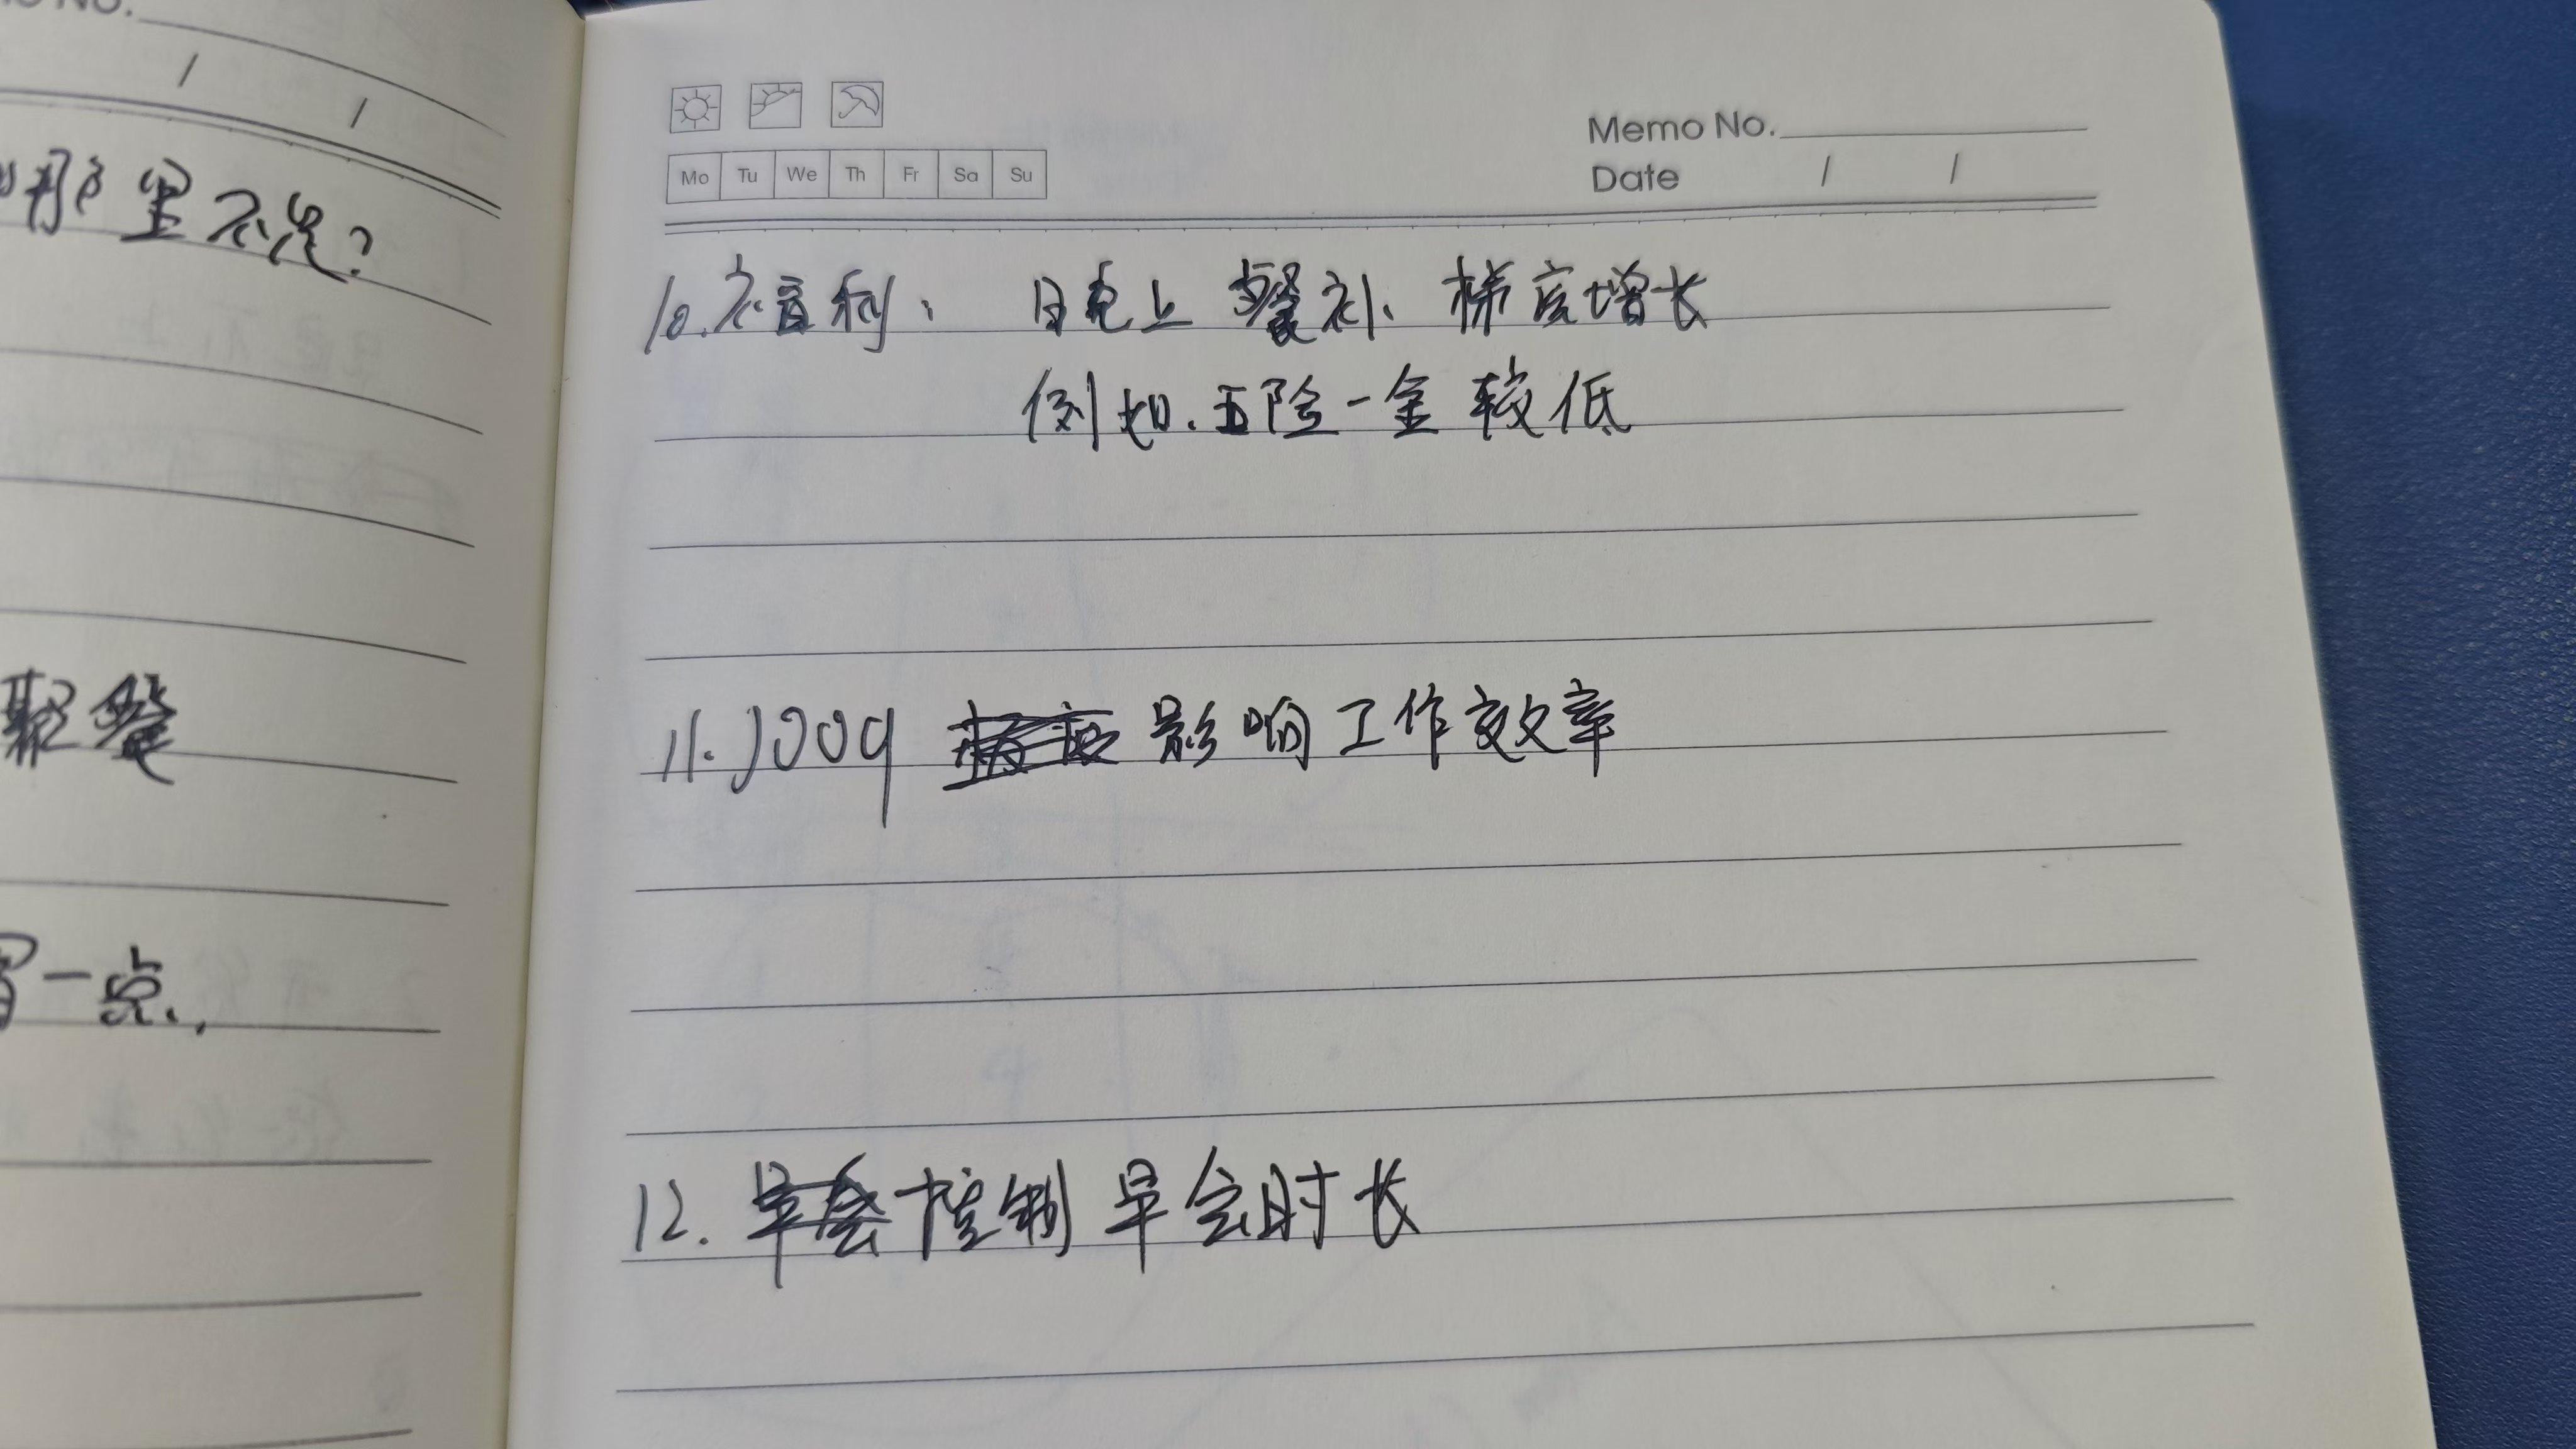 那里不足?
聚餐
一点.
Memo No.
Date / /
Mo Tu We Th Fr Sa Su
10.福利: 上 餐补、梯度增长
例如.五险一金 较低
11. 影响工作效率
12. 早会 控制 早会时长